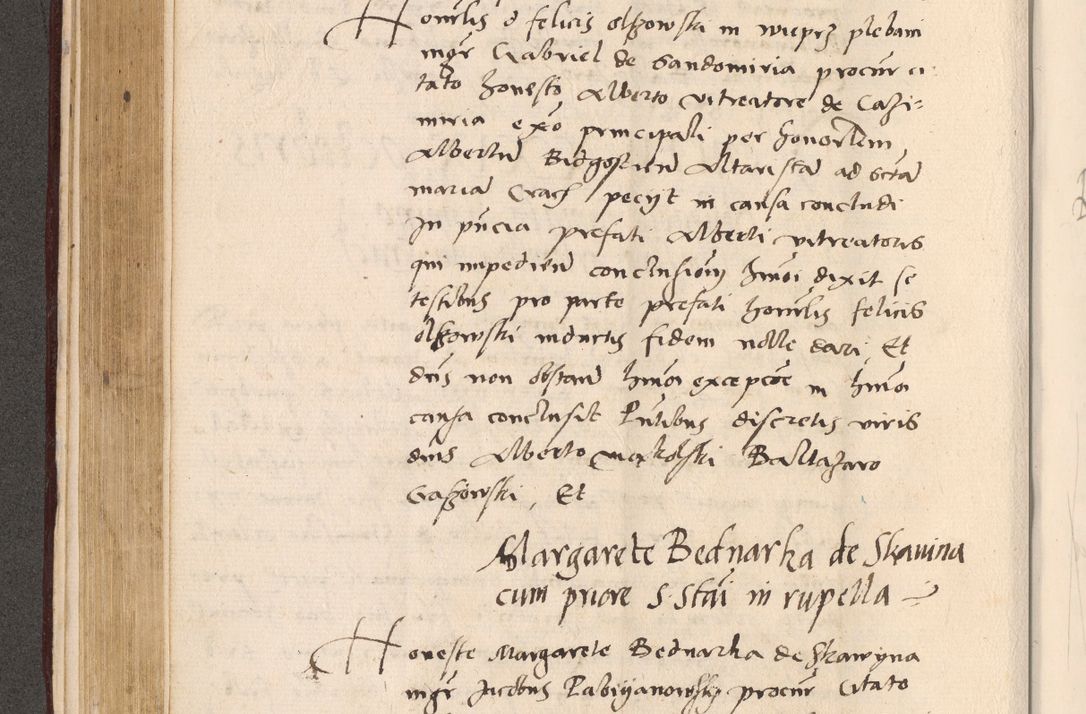 Honorabilis d felicis Olszowski in wieprz plebani
mgr Gabriel de Sandomiria procur ci
tato honesto Alberto vitreatore de Cazi=
miria exo principali per honorlem
Albertu Bidgostien Altarista ad Scta
maria Crac petyt in causa concludi
In pncia prefati Alberti vitreatoris
qui impedien conclusiom hmoi dixit se
testibus pro parte prefati honorlis felicis
Olszowski inductis fidem nolle dari Et
dns non obstan hmoi excepcoe in hmoi
causa conclusit Pntibus discretis viris
dnis Alberto Balthazaro
Gaszowski, Et
Margarete Bednarka de Skavina
cum priore S. Stai in rupella
Honeste Margarete Bednarka de Skawyna
mgr Jacobus Pabiyanowsky procur Citato